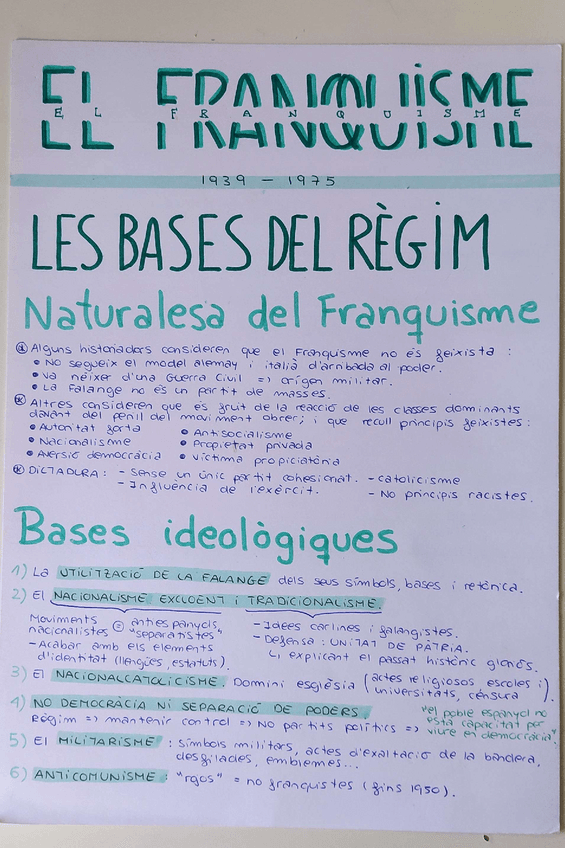 EL FRANQUISME
EL FRANQUISME
1939 - 1975
LES BASES DEL RÈGIM
Naturalesa del Franquisme
Alguns historiadors consideren que el Franquisme no és feixista :
• No segueix el model alemany i italià d'arribada al poder.
• Va néixer d'una Guerra Civil => origen militar.
• La Falange no és un partit de masses.
Altres consideren que és fruit de la reacció de les classes dominants
davant del perill del moviment obrer; i que recoll principis feixistes :
• Autoritat forta
• Antisocialisme
• Nacionalisme
• Propietat privada
• Aversió democràcia
• Víctima propiciatòria
DICTADURA : - Sense un únic partit cohesionat. - catolicisme
- Influència de l'exèrcit. - No principis racistes.
Bases ideològiques
1) La UTILITZACIÓ DE LA FALANGE dels seus símbols, bases i retòrica.
2) El NACIONALISME EXCLOENT i TRADICIONALISME.
Moviments nacionalistes = antiespanyols, "separatistes"
- Acabar amb els elements
d'identitat (llengües, estatuts).
- Idees carlines i falangistes.
- Defensa : UNITAT DE PÀTRIA.
↳ explicant el passat històric gloriós.
3) El NACIONALCATOLICISME. Domini església (actes religiosos escoles i
universitats, cènsura).
4) NO DEMOCRÀCIA NI SEPARACIÓ DE PODERS.
Règim => mantenir control => No partits polítics =>
"el poble espanyol no
està capacitat per
viure en democràcia".
5) El MILITARISME : símbols militars, actes d'exaltació de la bandera,
desfilades, emblemes...
6) ANTICOMUNISME : "rojos" = no franquistes (fins 1950).